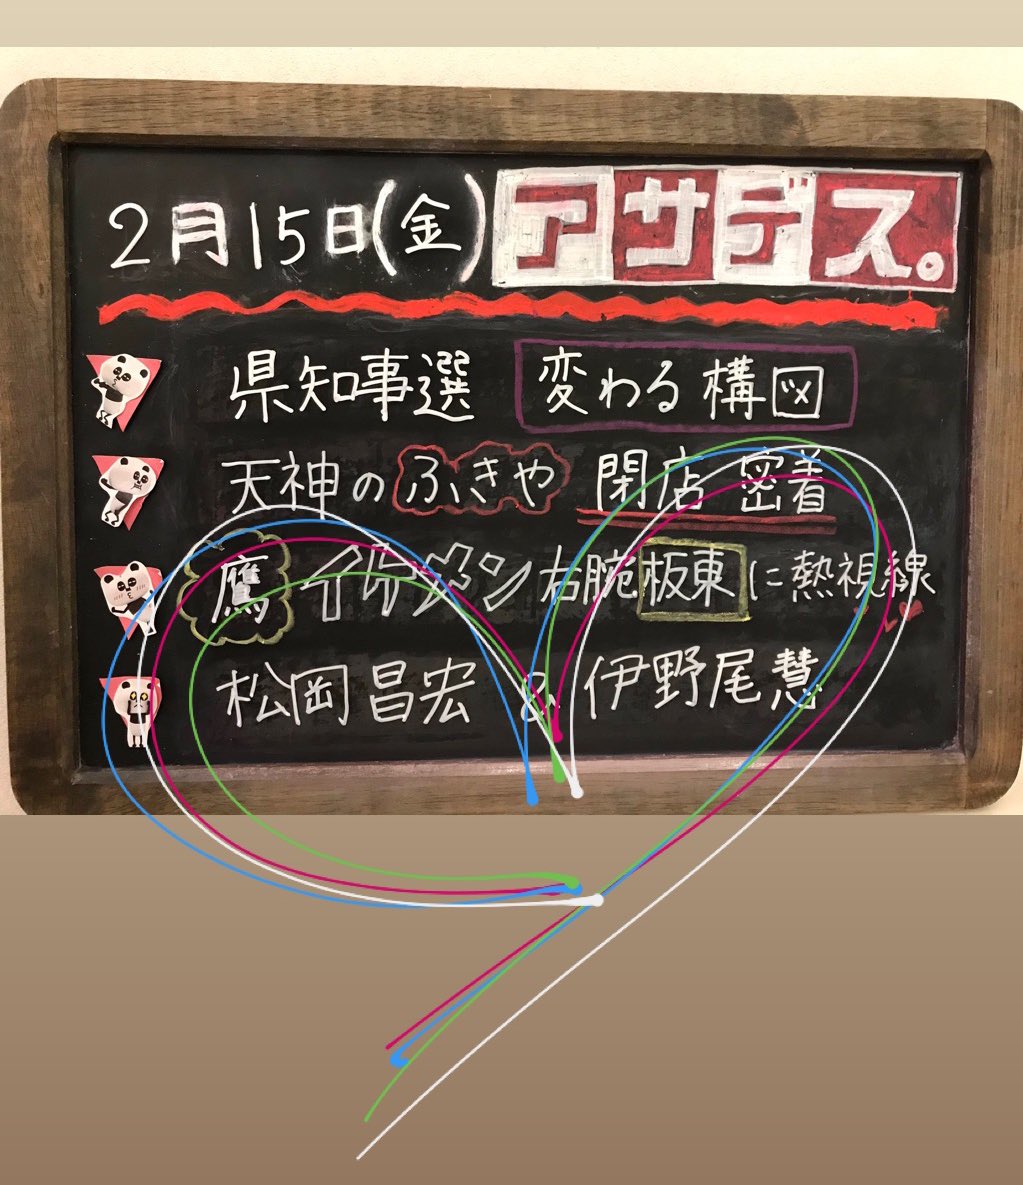 2月15日(金) アサデス。
県知事選 変わる構図
天神のふきや 閉店 密着
鷹 イケメン 右腕 板東に熱視線
松岡昌宏 & 伊野尾慧